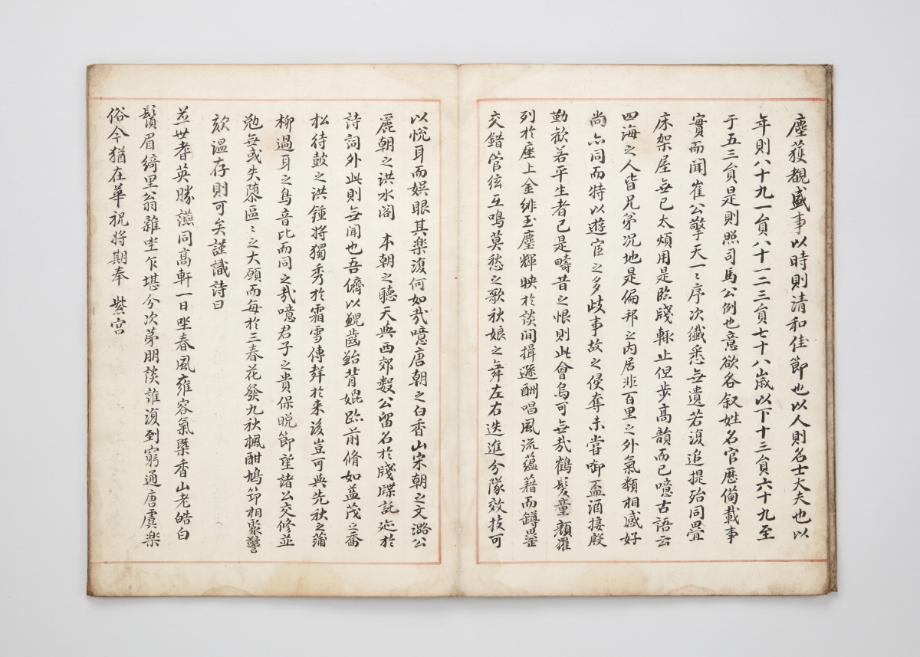 塵獲覩盛事以時則清和佳節也以人則名士大夫也以
年則八十九一員八十一二三員七十八歲以下十三員六十九至
于五三員是則照司馬公例也意欲各叙姓名官歷備載事
實而聞崔公擎天一一序次纖悉無遺若復追提殆同疊
床架屋無已太煩用是臨牋輒止但步高韻而已噫古語云
四海之人皆兄弟況地是偏邦之內居非百里之外氣類相感好
尚亦同而特以遊宦之多歧事故之侵奪未嘗御盃酒接殷
勤歡若平生者已是疇昔之恨則此會烏可無哉鶴髮童顏羅
列於座上金緋玉塵輝映於談間揖遜酬唱風流蘊藉而罇罍
交錯管絃互鳴莫愁之歌秋娘之舞左右迭進分隊效技可
以悅耳而娛眼其樂復何如哉噫唐朝之白香山宋朝之文潞公
麗朝之洪水閣 本朝之聽天與西郊數公留名於牋牒託迹於
詩詞外此則無聞也吾儕以鯢齒鮐背媲跡前脩如益茂之喬
松待鼓之洪鍾將獨秀於霜雪傳聲於来後豈可與先秋之蒲
柳過耳之鳥音比而同之哉噫君子之貴保晩節望諸公交修並
勉無或失墜區々之大願而每於三春花發九秋楓酣鳩笻相聚警
欬溫存則可矣謹識詩曰
並世耆英勝讌同高軒一日坐春風雍容氣槩香山老皓白
鬚眉綺里翁離坐乍堪分次第朋談誰復到窮通唐虞樂
俗今猶在華祝將期奉 紫宮